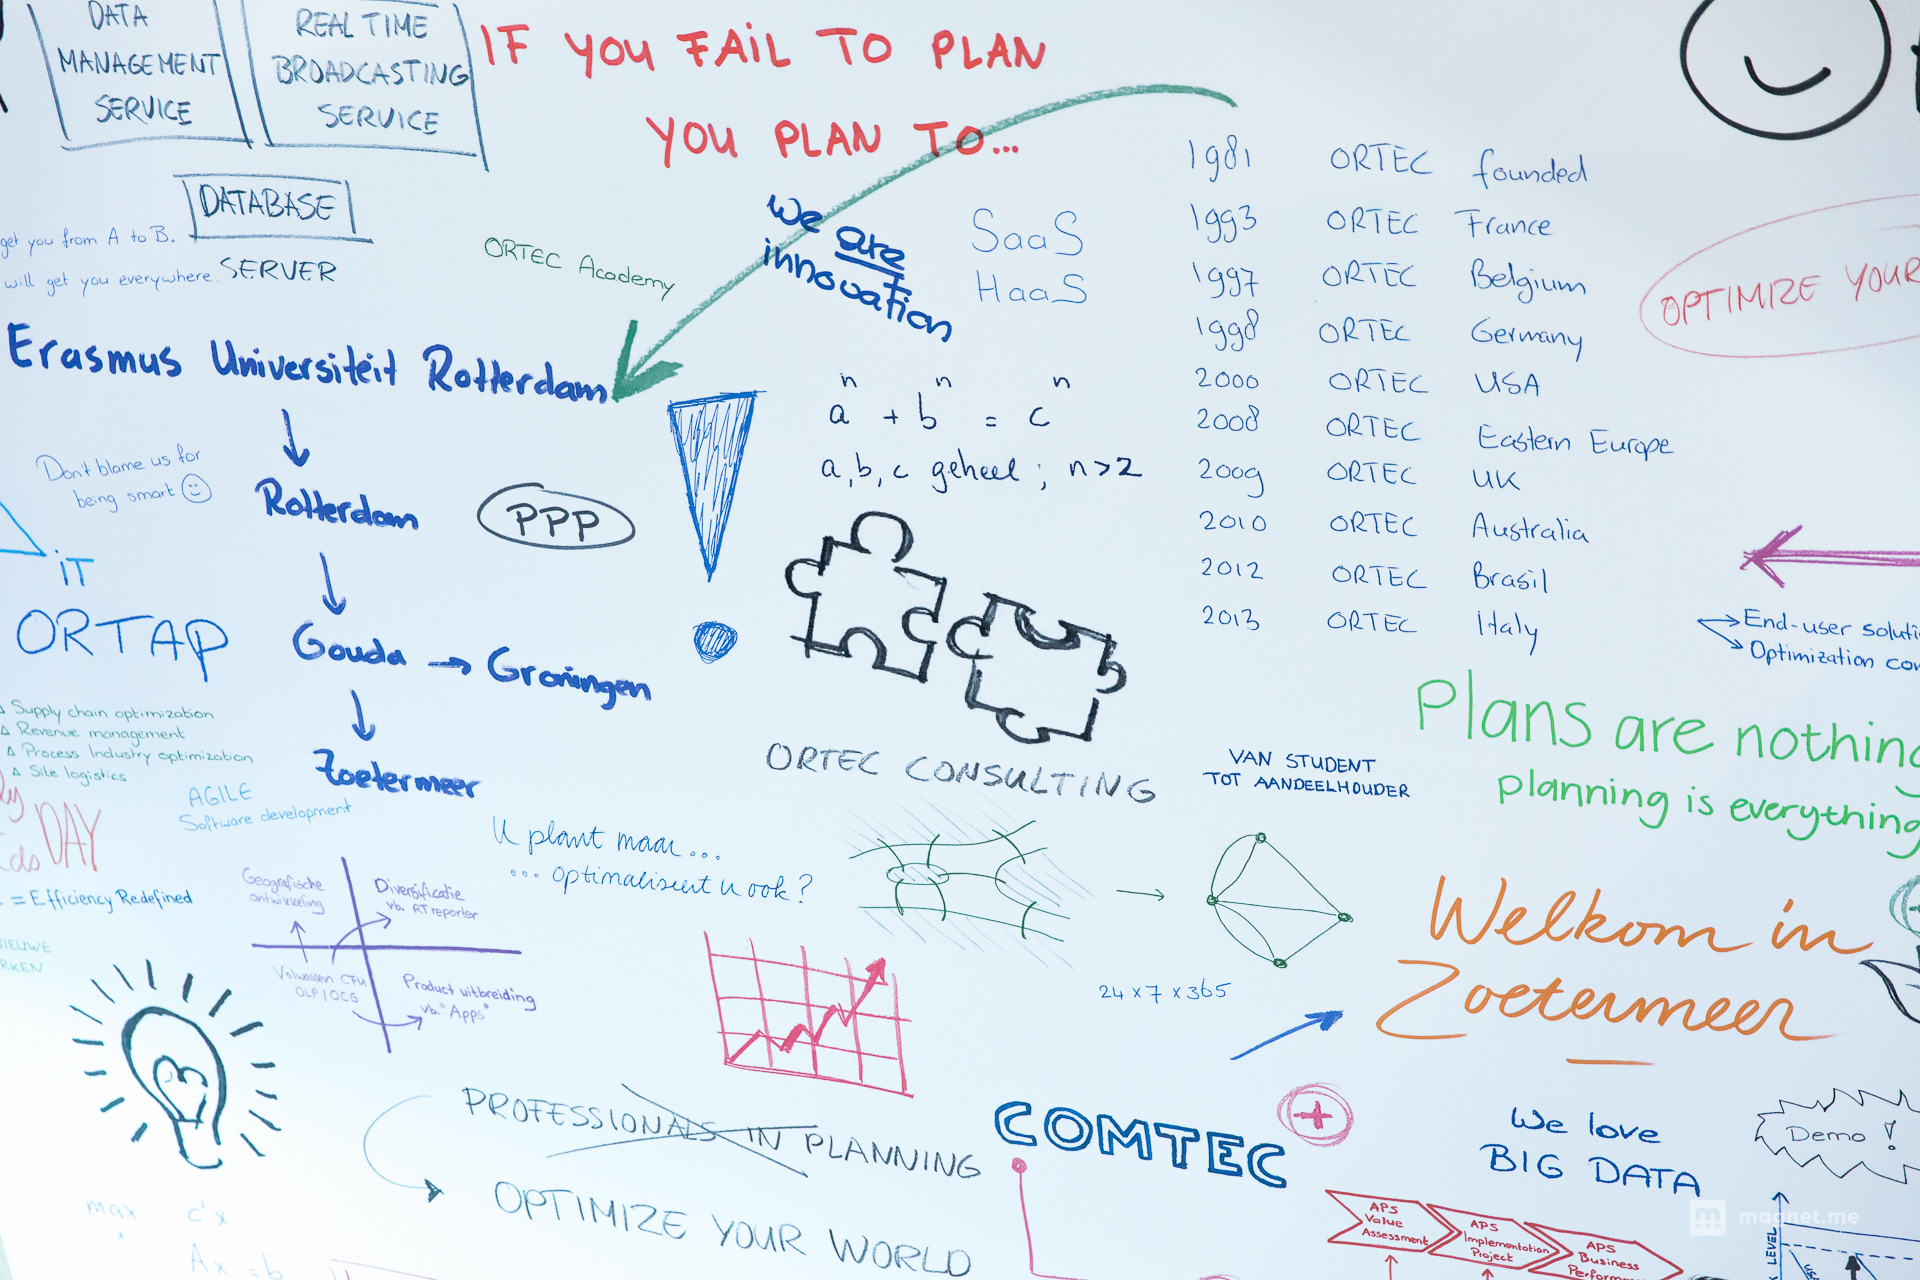 DATA
MANAGEMENT
SERVICE
REAL TIME
BROADCASTING
SERVICE
DATABASE
SERVER
IF YOU FAIL TO PLAN
YOU PLAN TO...
get you from A to B.
will get you everywhere.
ORTEC Academy
We are
innovation
SaaS
HaaS
1981 ORTEC founded
1993 ORTEC France
1997 ORTEC Belgium
1998 ORTEC Germany
2000 ORTEC USA
2008 ORTEC Eastern Europe
2009 ORTEC UK
2010 ORTEC Australia
2012 ORTEC Brasil
2013 ORTEC Italy
OPTIMIZE YOUR
Erasmus Universiteit Rotterdam
Rotterdam
Gouda → Groningen
Zoetermeer
Don't blame us for
being smart
PPP
aⁿ + bⁿ = cⁿ
a, b, c geheel ; n > 2
iT
ORTAP
Supply chain optimization
Revenue management
Process Industry optimization
Site logistics
DAY
AGILE
Software development
= Efficiency Redefined
ORTEC CONSULTING
VAN STUDENT
TOT AANDEELHOUDER
End-user
Optimization
Plans are nothing
planning is everything
U plant maar...
... optimaliseert u ook?
Geografische
ontwikkeling
Diversificatie
vb. RT reporter
Volwassen CTU
OLP/OCG
Product uitbreiding
vb. "Apps"
24 x 7 x 365
Welkom in
Zoetermeer
PROFESSIONALS IN PLANNING
OPTIMIZE YOUR WORLD
COMTEC
+
We love
BIG DATA
Demo !
APS
Value
Assessment
APS
Implementation
Project
APS
Business
max c'x
x
Ax = b
LEVEL
magnet.me